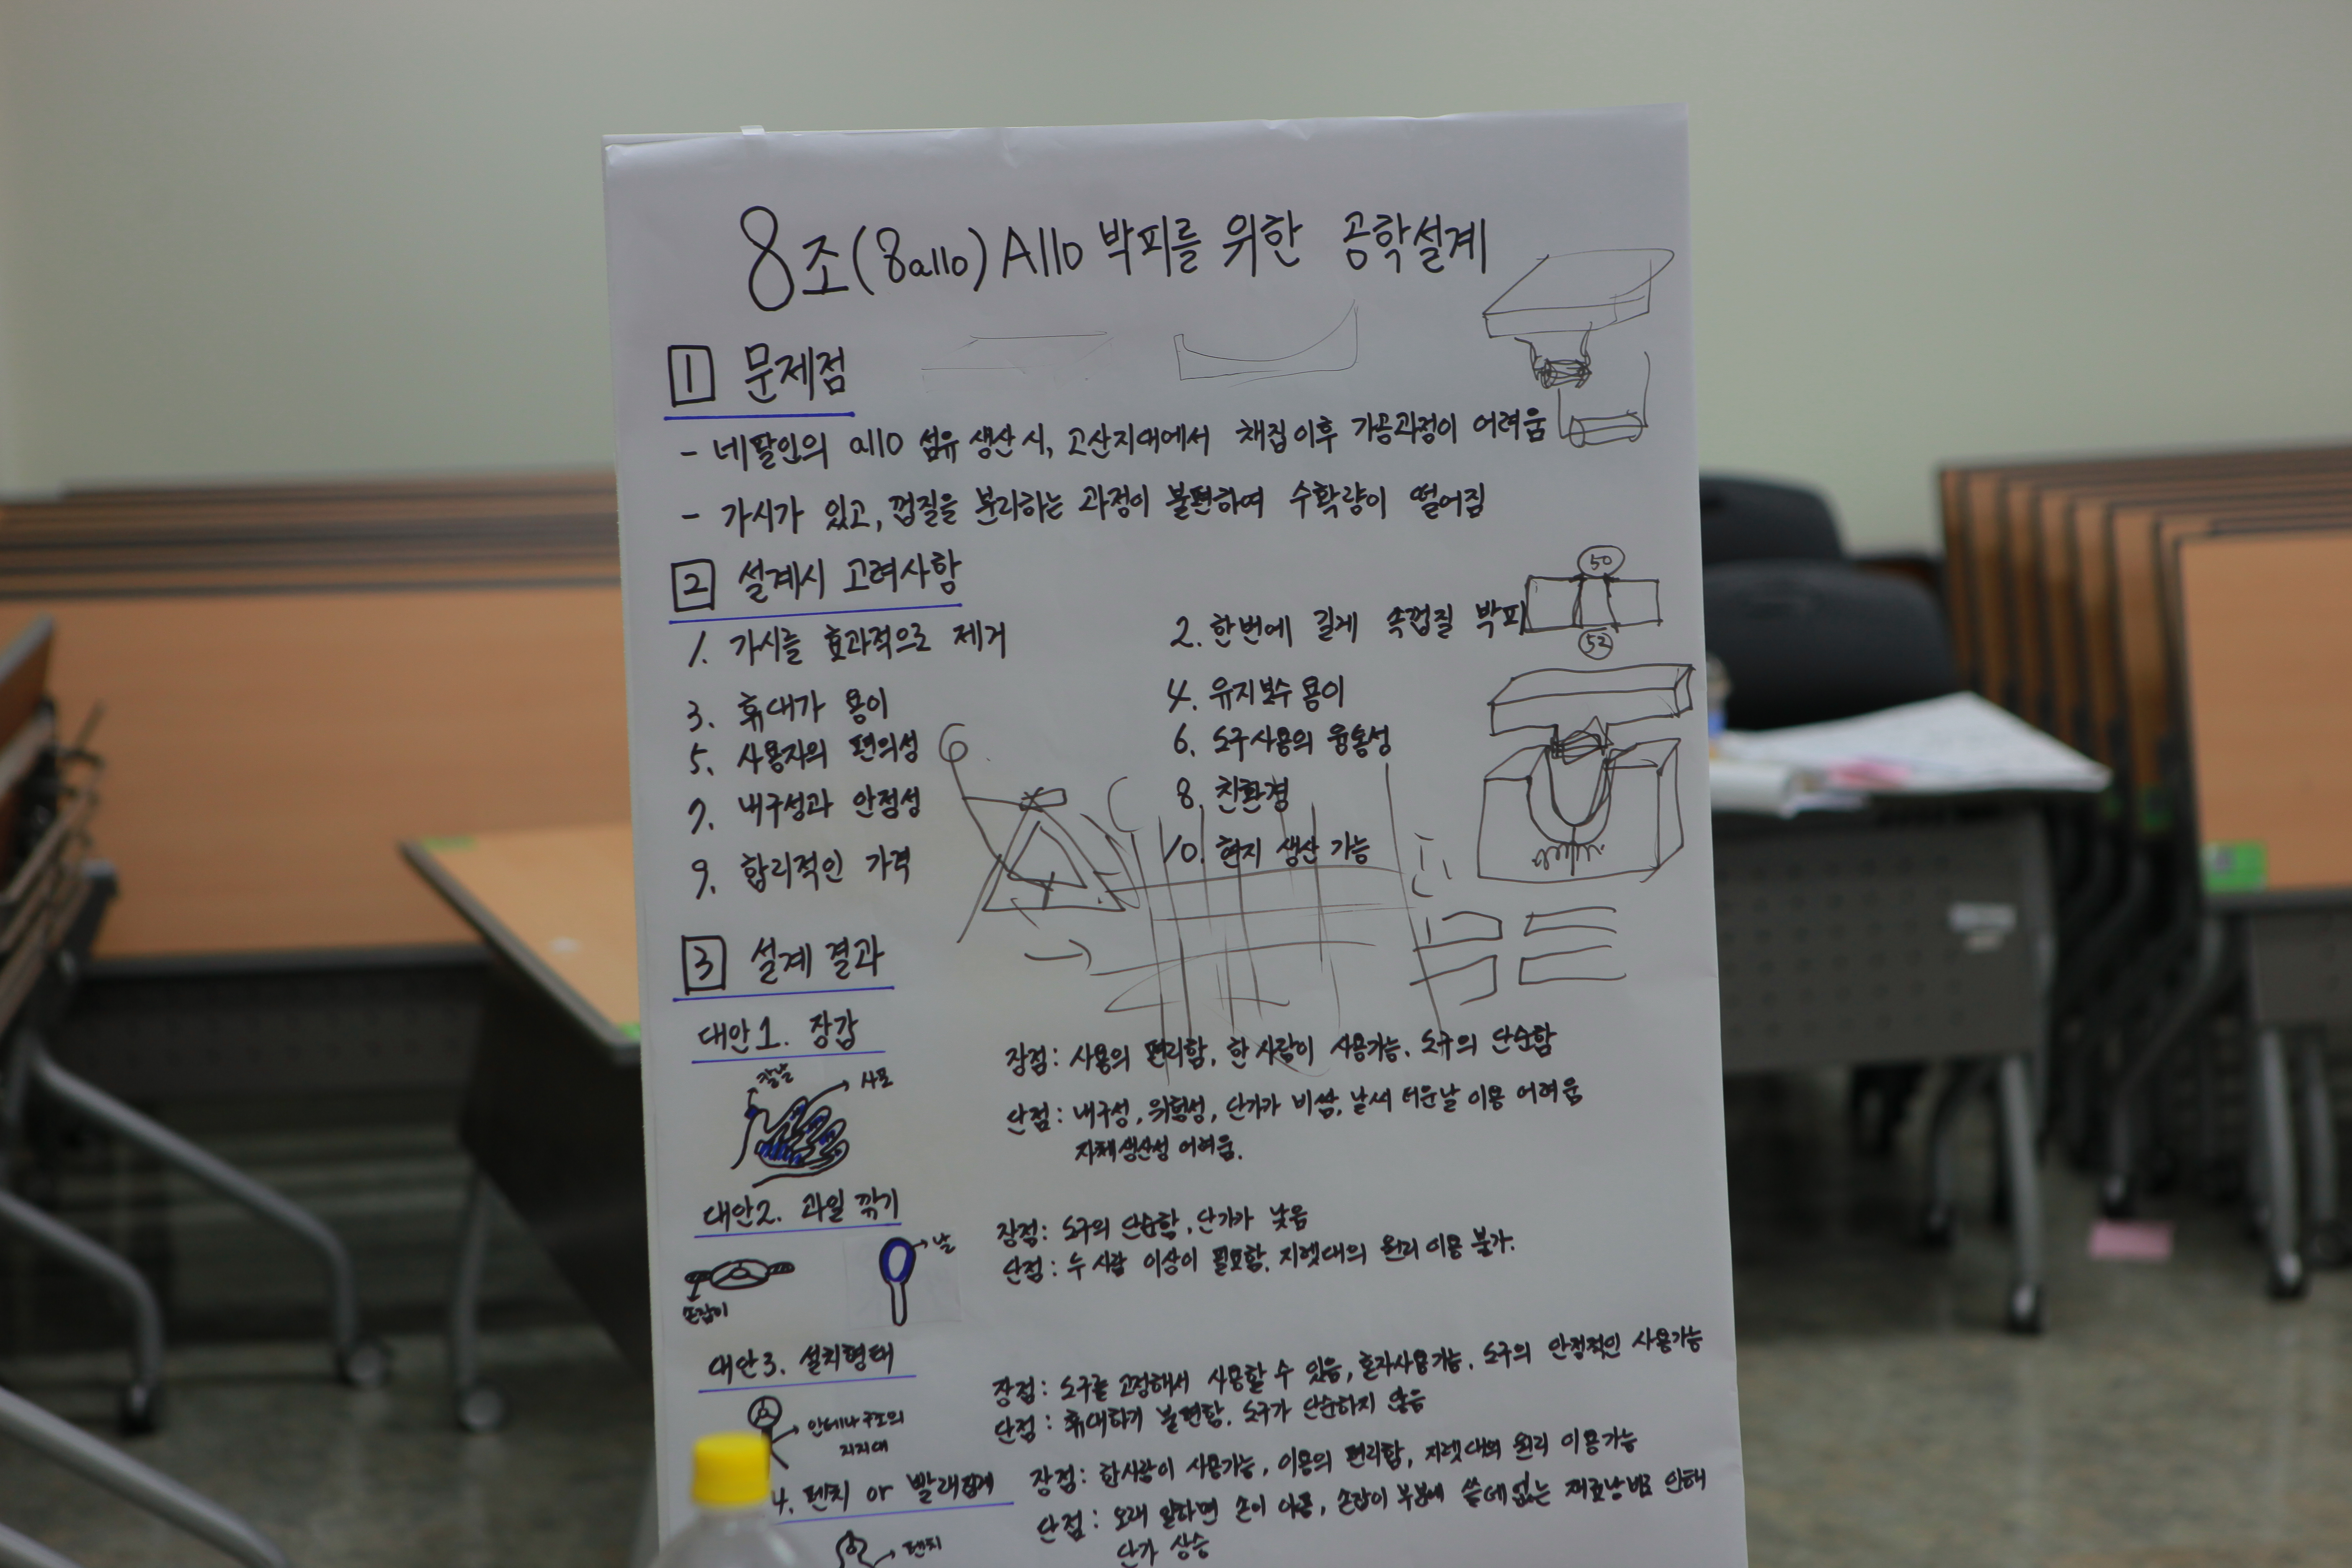 8조(8allo) Allo 박피를 위한 공학설계
1 문제점
- 네팔인의 allo 섬유 생산시, 고산지대에서 채집이후 가공과정이 어려움
- 가시가 있고, 껍질을 분리하는 과정이 불편하여 수확량이 떨어짐
2 설계시 고려사항
50
1. 가시를 효과적으로 제거 2. 한번에 길게 속껍질 박피
52
3. 휴대가 용이 4. 유지보수 용이
5. 사용자의 편의성 6. 도구사용의 융통성
7. 내구성과 안정성 8. 친환경
9. 합리적인 가격 10. 현지 생산 가능
3 설계 결과
대안1. 장갑
장점: 사용의 편리함, 한 사람이 사용가능. 도구의 단순함
칼날 사포
단점: 내구성, 위험성, 단가가 비쌈, 날씨 더운날 이용 어려움
자체생산성 어려움.
대안2. 과일 깎기
장점: 도구의 단순함, 단가가 낮음
날
단점: 두 사람 이상이 필요함, 지렛대의 원리 이용 불가.
손잡이
대안3. 설치형태
장점: 도구를 고정해서 사용할 수 있음, 혼자사용가능, 도구의 안정적인 사용가능
단점: 휴대하기 불편함, 도구가 단순하지 않음
안테나구조의
지지대
4. 펜치 or 빨래집게
장점: 한사람이 사용가능, 이용의 편리함, 지렛대의 원리 이용가능
단점: 오래 일하면 손이 아픔, 손잡이 부분에 쓸데없는 재료낭비로 인해
단가 상승
펜치